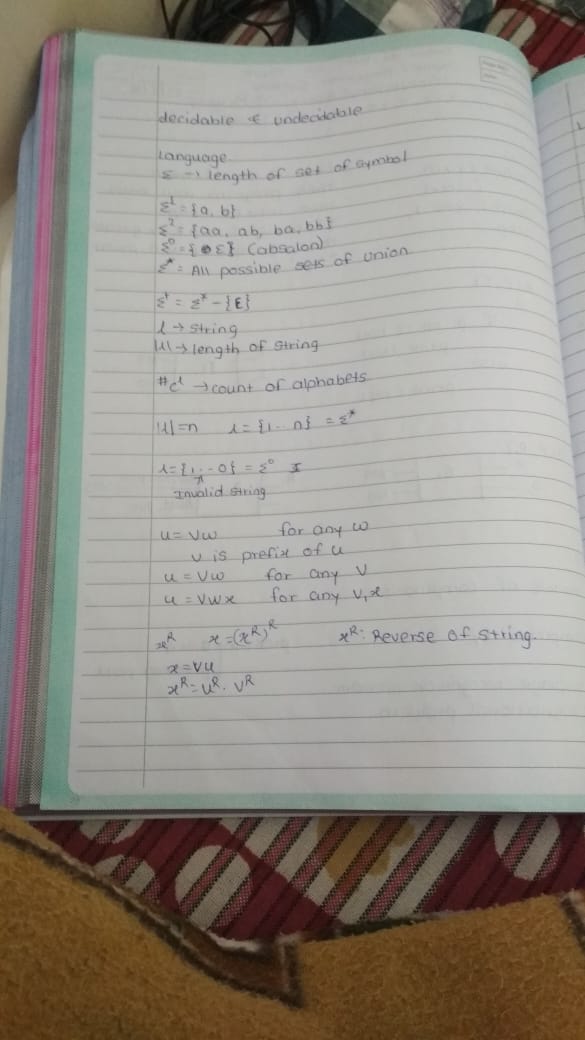 decidable & undecidable
Language
Σ → length of set of symbol
Σ¹ = {a, b}
Σ² = {aa, ab, ba, bb}
Σ⁰ = {ε} (absalon)
Σ* = All possible sets of union
Σ⁺ = Σ* - {ε}
l → string
|l| → length of string
→ count of alphabets
|l| = n λ = {1 -- n} = Σ*
λ = {1 -- 0} = Σ⁰
Invalid string
u = vw for any w
v is prefix of u
u = vw for any v
u = vwx for any v, x
xᴿ x = (xᴿ)ᴿ xᴿ: Reverse of string.
x = vu
xᴿ = uᴿ. vᴿ